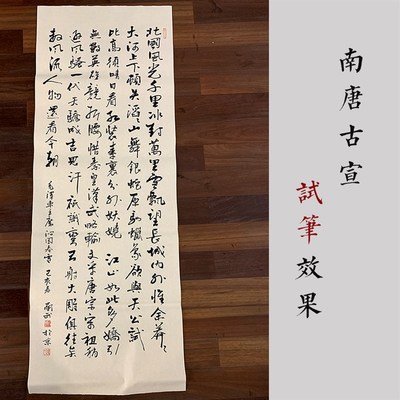 南唐古宣
試筆效果
北國風光千里冰封萬里雪飄望長城內外惟余莽莽
大河上下頓失滔滔山舞銀蛇原馳蠟象欲與天公試
比高須晴日看紅裝素裹分外妖嬈江山如此多嬌引
無數英雄競折腰惜秦皇漢武略輸文采唐宗宋祖稍
遜風騷一代天驕成吉思汗祇識彎弓射大雕俱往矣
數風流人物還看今朝
毛澤東主席沁園春雪 於京